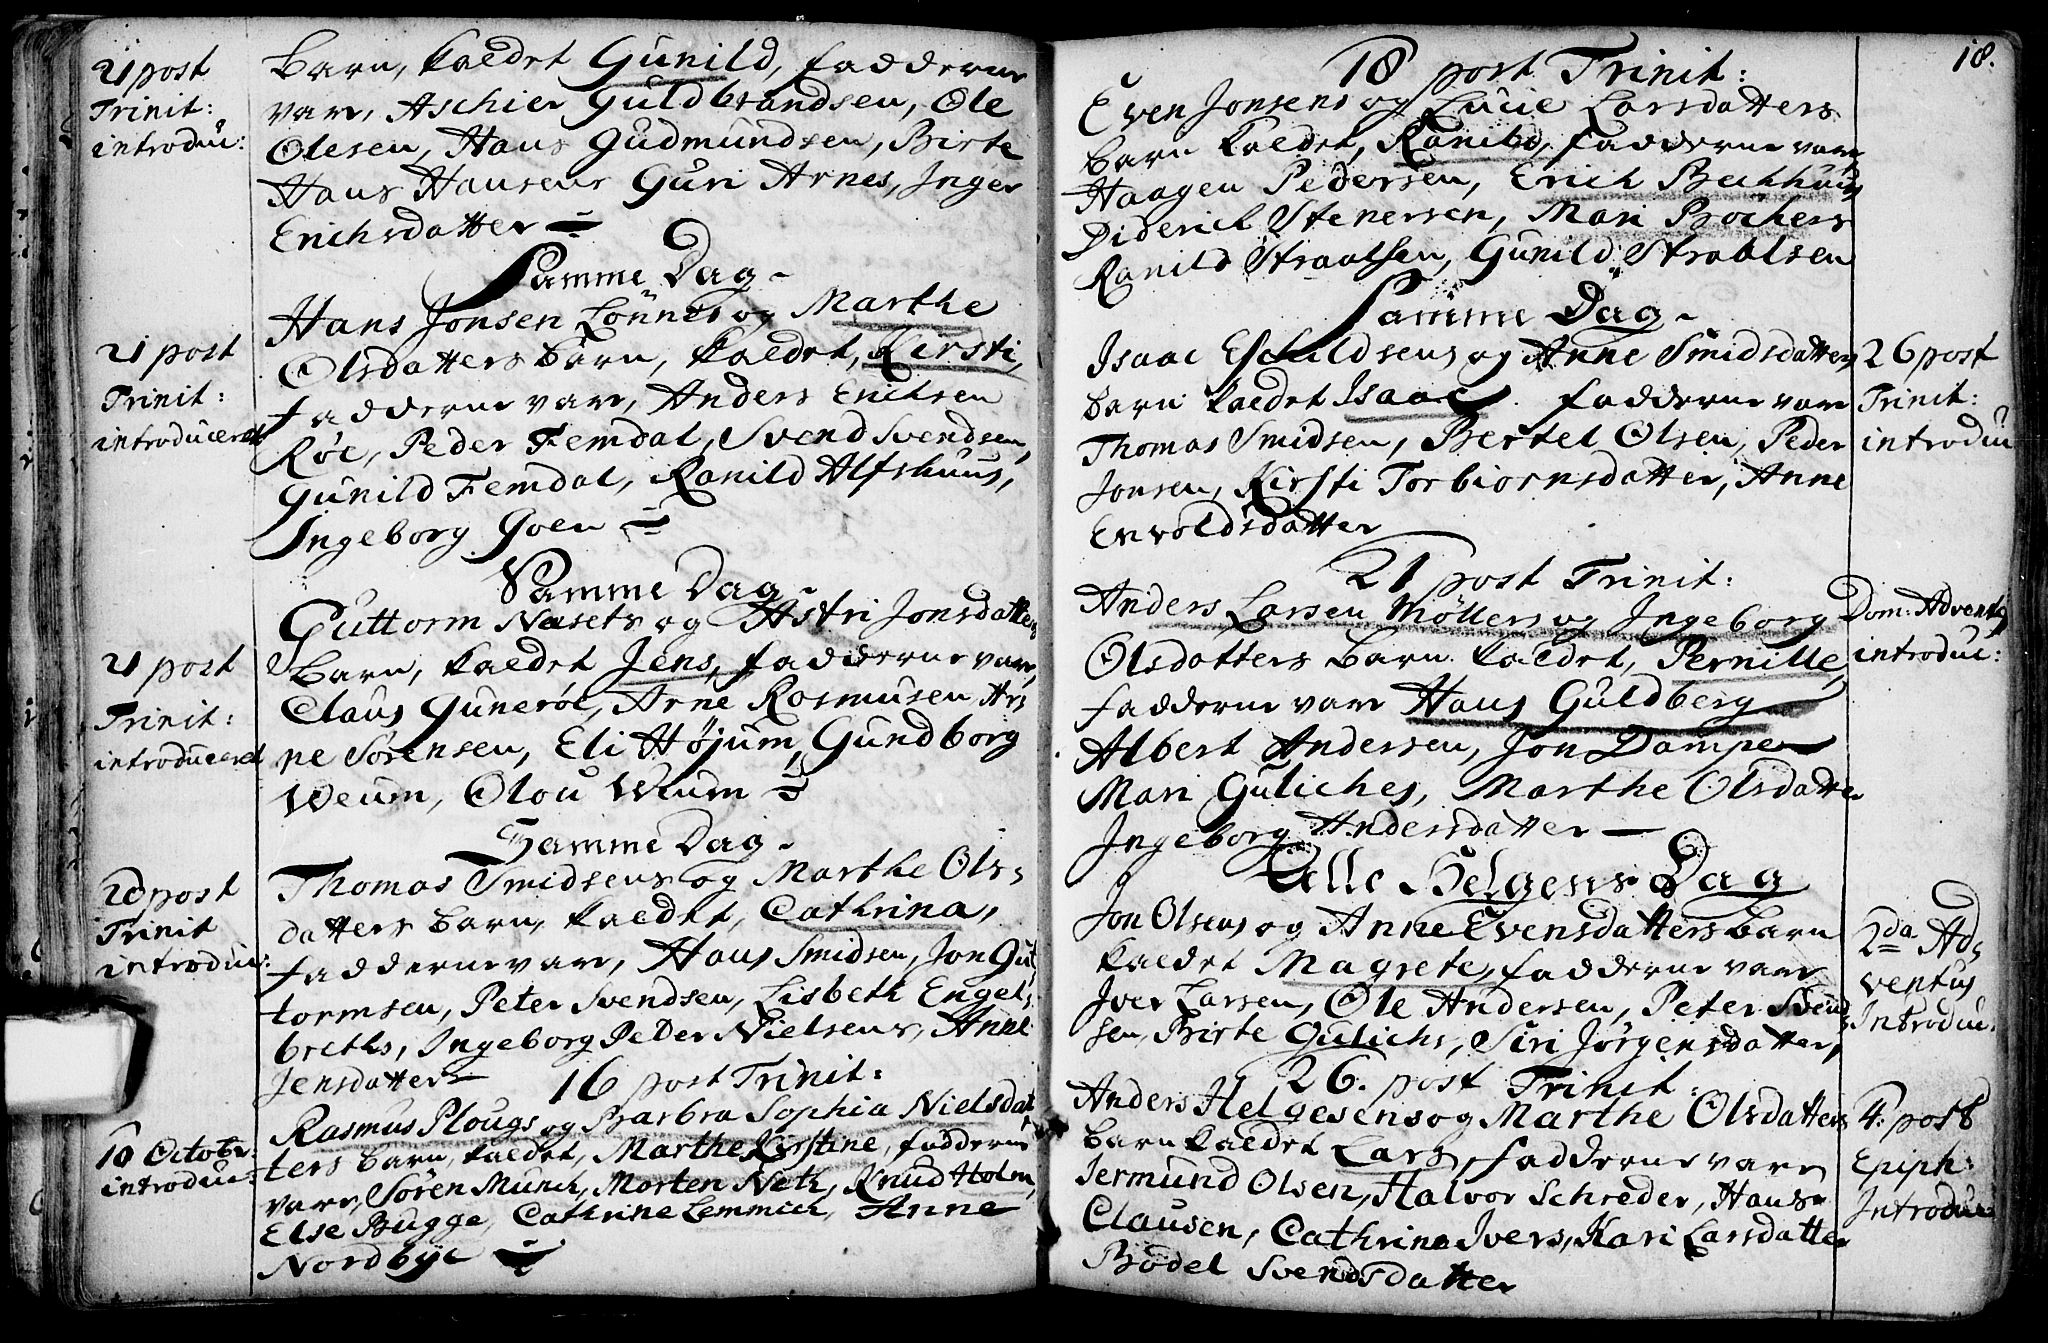 21 post
Trinit:
introduc:
Barn, kaldet Gunild, fadderne
vare, Aschier Guldbrandsen, Ole
Olesen, Hans Gudmundsen, Birte
Hans Hansens Guri Arnes, Inger
Erichsdatter
Samme Dag
21 post
Trinit:
introduceret
Hans Jonsen Lönnes og Marthe
Olsdatters barn, kaldet, Kirsti,
fadderne vare, Anders Erichsen
Röe, Peder Femdal, Svend Svendsen,
Gunild Femdal, Ranild Alfshuus,
Ingeborg Goen
Samme Dag
21 post
Trinit:
introduceret
Guttorm Næsets og Astri Jonsdatters
Barn, kaldet Jens, fadderne vare,
Claus Guneröe, Arne Rasmusen Ar=
ne Sörensen, Eli Höjum, Gundborg
Weum, Olou Wium
Samme Dag
20 post
Trinit
introduc:
Thomas Smidsens og Marthe Ols=
datters barn, kaldet, Cathrina,
fadderne vare, Hans Smidsen, Jon Gut
tormsen, Peter Svendsen, Lisbeth Engel=
breths, Ingeborg Peder Nielsens, Anne
Jensdatter
16 post Trinit:
10 Octobr:
introduc:
Rasmus Plougs og Barbra Sophia Nielsdat
ters barn, kaldet, Marthe Kirstine, fadderne
vare, Sören Munch, Morten Neth, Knud Holm,
Else Bugge, Cathrine Lemmich, Anne
Nordbÿe
18.
18 post Trinit:
Even Jonsens og Lucie Larsdatters
barn kaldet, Ranild, fadderne vare,
Haagen Pedersen, Erich Bechhuus
Diderich Stenersen, Mari Bochers
Ranild Straalsen, Gunild Straalsen
Samme Dag
Isaac Eschildsens og Anne Smidsdatters
barn kaldet Isaac. fadderne vare
Thomas Smidsen, Bertel Olsen, Peder
Jonsen, Kirsti Torbiornsdatter, Anne
Envoldsdatter
26 post
Trinit:
introduc
21 post Trinit:
Anders Larsen Möllers og Ingeborg
Olsdatters barn kaldet, Pernille,
fadderne vare Hans Guldberg
Albert Andersen, Jon Dampe
Mari Guliches, Marthe Olsdatter
Ingeborg Andersdatter
Dom: Advents
introduc:
Alle Helgens Dag
Jon Olsens og Anne Evensdatters barn
kaldet Magrete, fadderne vare
Iver Larsen, Ole Andersen, Peter Svend
sen, Birte Gulichs, Siri Jörgensdatter,
2da Ad=
ventus
Introduc:
26. post Trinit:
Anders Helgesens og Marthe Olsdatters
barn kaldet Lars, fadderne vare
Jermund Olsen, Halvor Schreder, Hans
Clausen, Cathrina Ivers, Kari Larsdatter
Bodel Svendsdatter
4. post
Epiph:
Introduc: